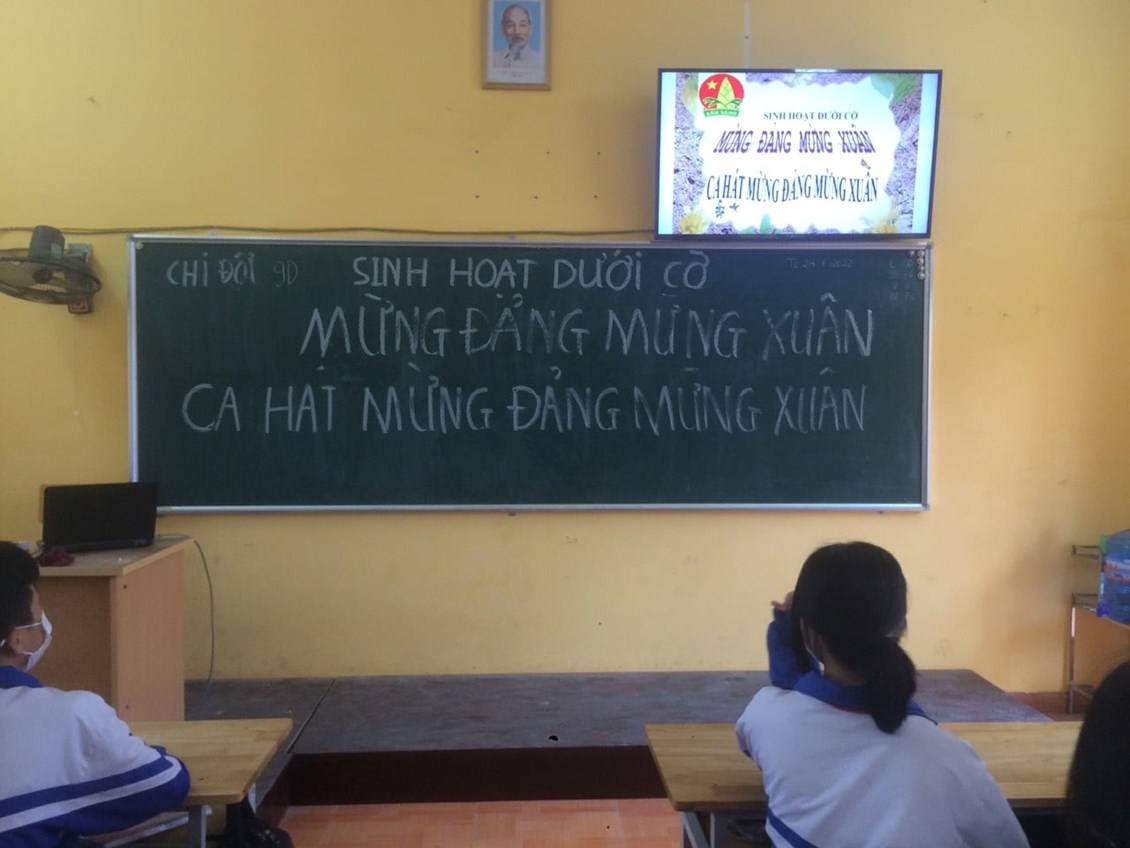 SINH HOẠT DƯỚI CỜ
MỪNG ĐẢNG MỪNG XUÂN
CA HÁT MỪNG ĐẢNG MỪNG XUÂN
CHI ĐỘI 9D
SINH HOẠT DƯỚI CỜ
MỪNG ĐẢNG MỪNG XUÂN
CA HÁT MỪNG ĐẢNG MỪNG XUÂN